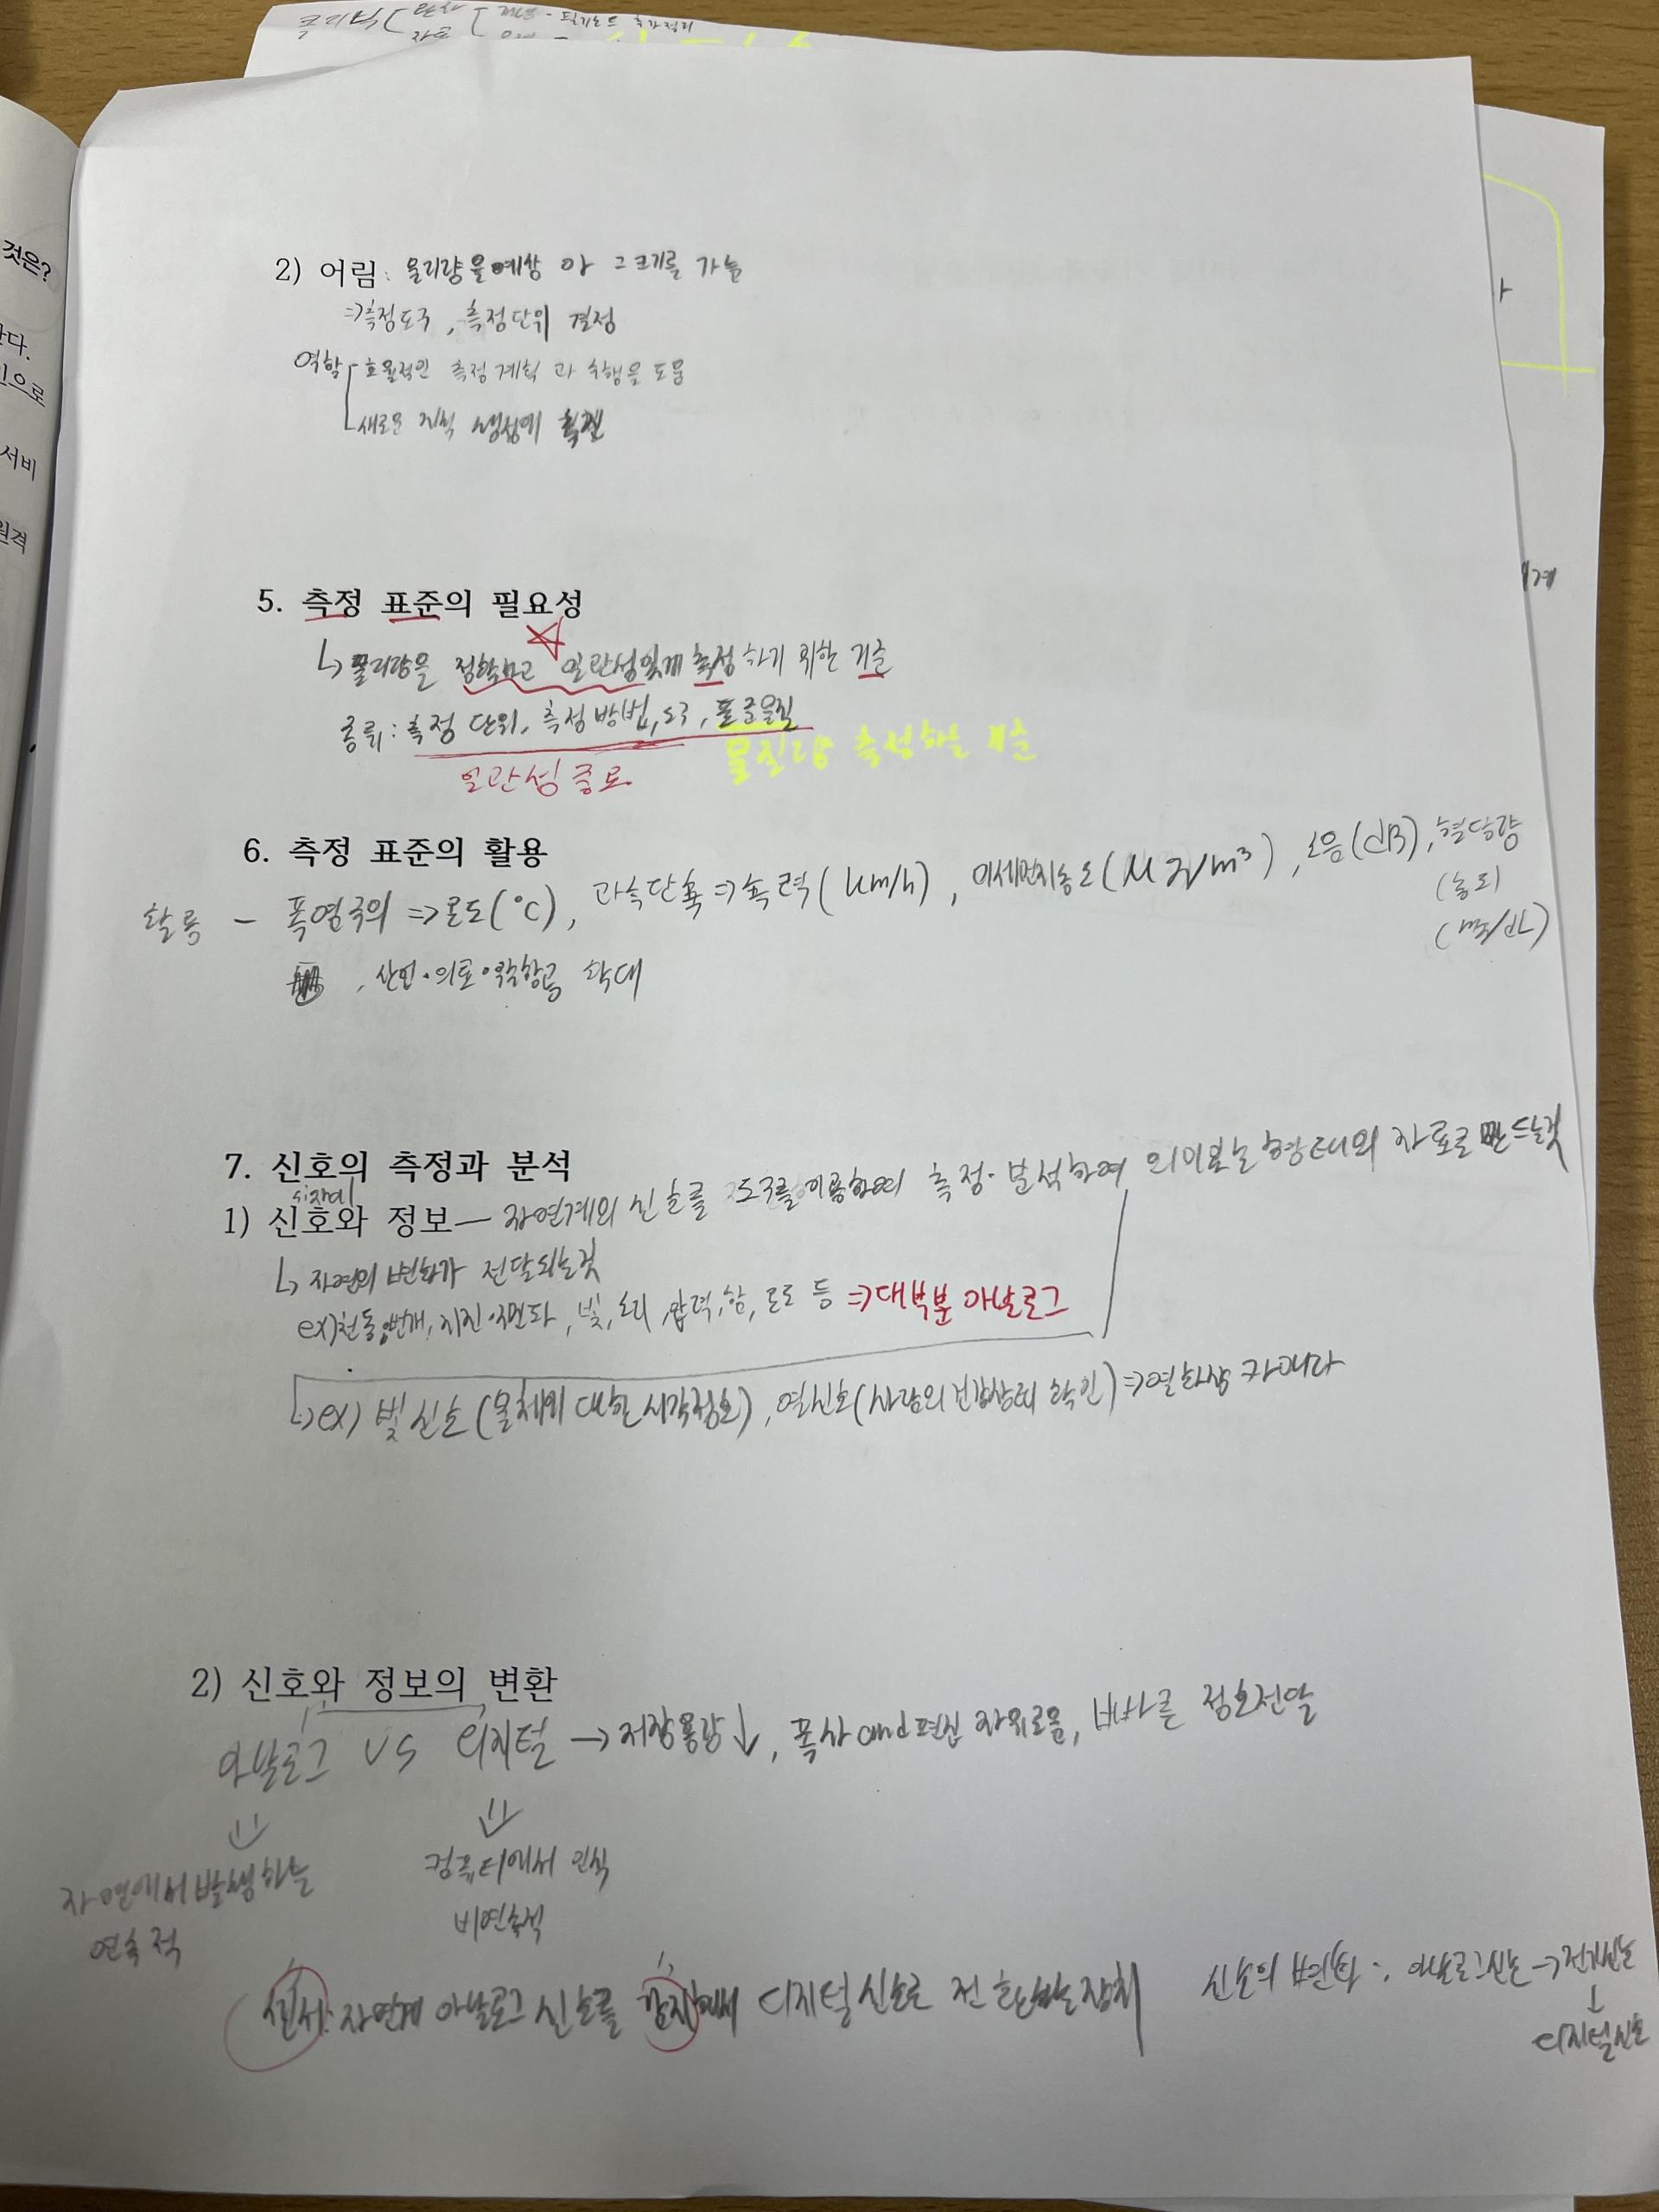 것은?
서비
2) 어림: 물리량을 예상 아 그 크기를 가늠
⇒측정도구, 측정단위 결정
역할 - 효율적인 측정 계획과 수행을 도움
새로운 지식 생성에
5. 측정 표준의 필요성
↳ 물리량을 정확하고 일관성있게 측정하기 위한 기준
종류: 측정 단위, 측정 방법, 도구, 표준물질
물질량 측정하는 기준
일관성 중요
6. 측정 표준의 활용
활용 - 폭염주의 ⇒ 온도(°C), 과속단속 ⇒ 속력(km/h), 미세먼지농도(μg/m³), 소음(dB), 혈당량
(농도)
(mg/dL)
, 산업·의료 확대
7. 신호의 측정과 분석
signal
1) 신호와 정보 — 자연계의 신호를 도구를 이용하여 측정·분석하여 의미있는 형태의 자료로 만드는것
↳ 자연의 변화가 전달되는것
ex)천둥번개, 지진, 빛, 소리, 압력, 힘, 온도 등 ⇒대부분 아날로그
↳ex) 빛신호(물체에 대한 시각정보), 열신호(사람의 건강상태 확인)⇒열화상 카메라
2) 신호와 정보의 변환
아날로그 VS 디지털 → 저장용량↓, 복사 and 편집 자유로움, 빠른 정보전달
자연에서 발생하는
연속적
컴퓨터에서 인식
비연속적
센서: 자연계 아날로그 신호를 감지해서 디지털신호로 전환하는장치
신호의 변환: 아날로그신호 → 전기신호
↓
디지털신호